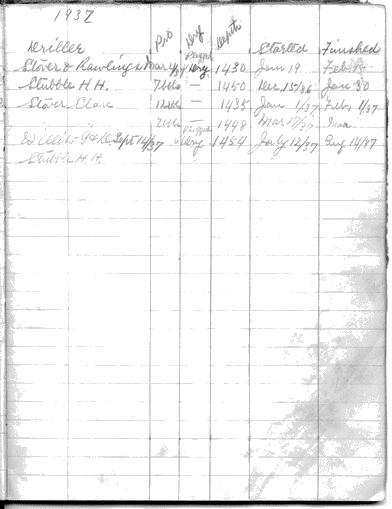 1937
Driller Pro Dry Depth Started Finished
Plugged
Stover & Rawlings Mar 4/37 Dry 1430 Jan 19 Feb
Stubble H.H. 7bbls — 1450 Dec. 15/36 Jan 30
Stover Clare 12bbls — 1435 Jan 1/37 Feb, 1/37
7bbls — 1448 Mar 17/37
plugged
Sept 14/37 Dry 1454 July 12/37 Aug 14/37
Stubble H.H.